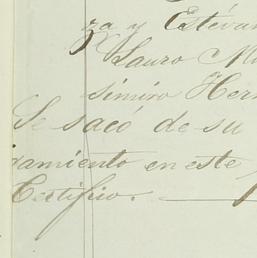 za y Estévan
Lauro M
simiro Her
Se sacó de su
ramiento en este
Certifico.